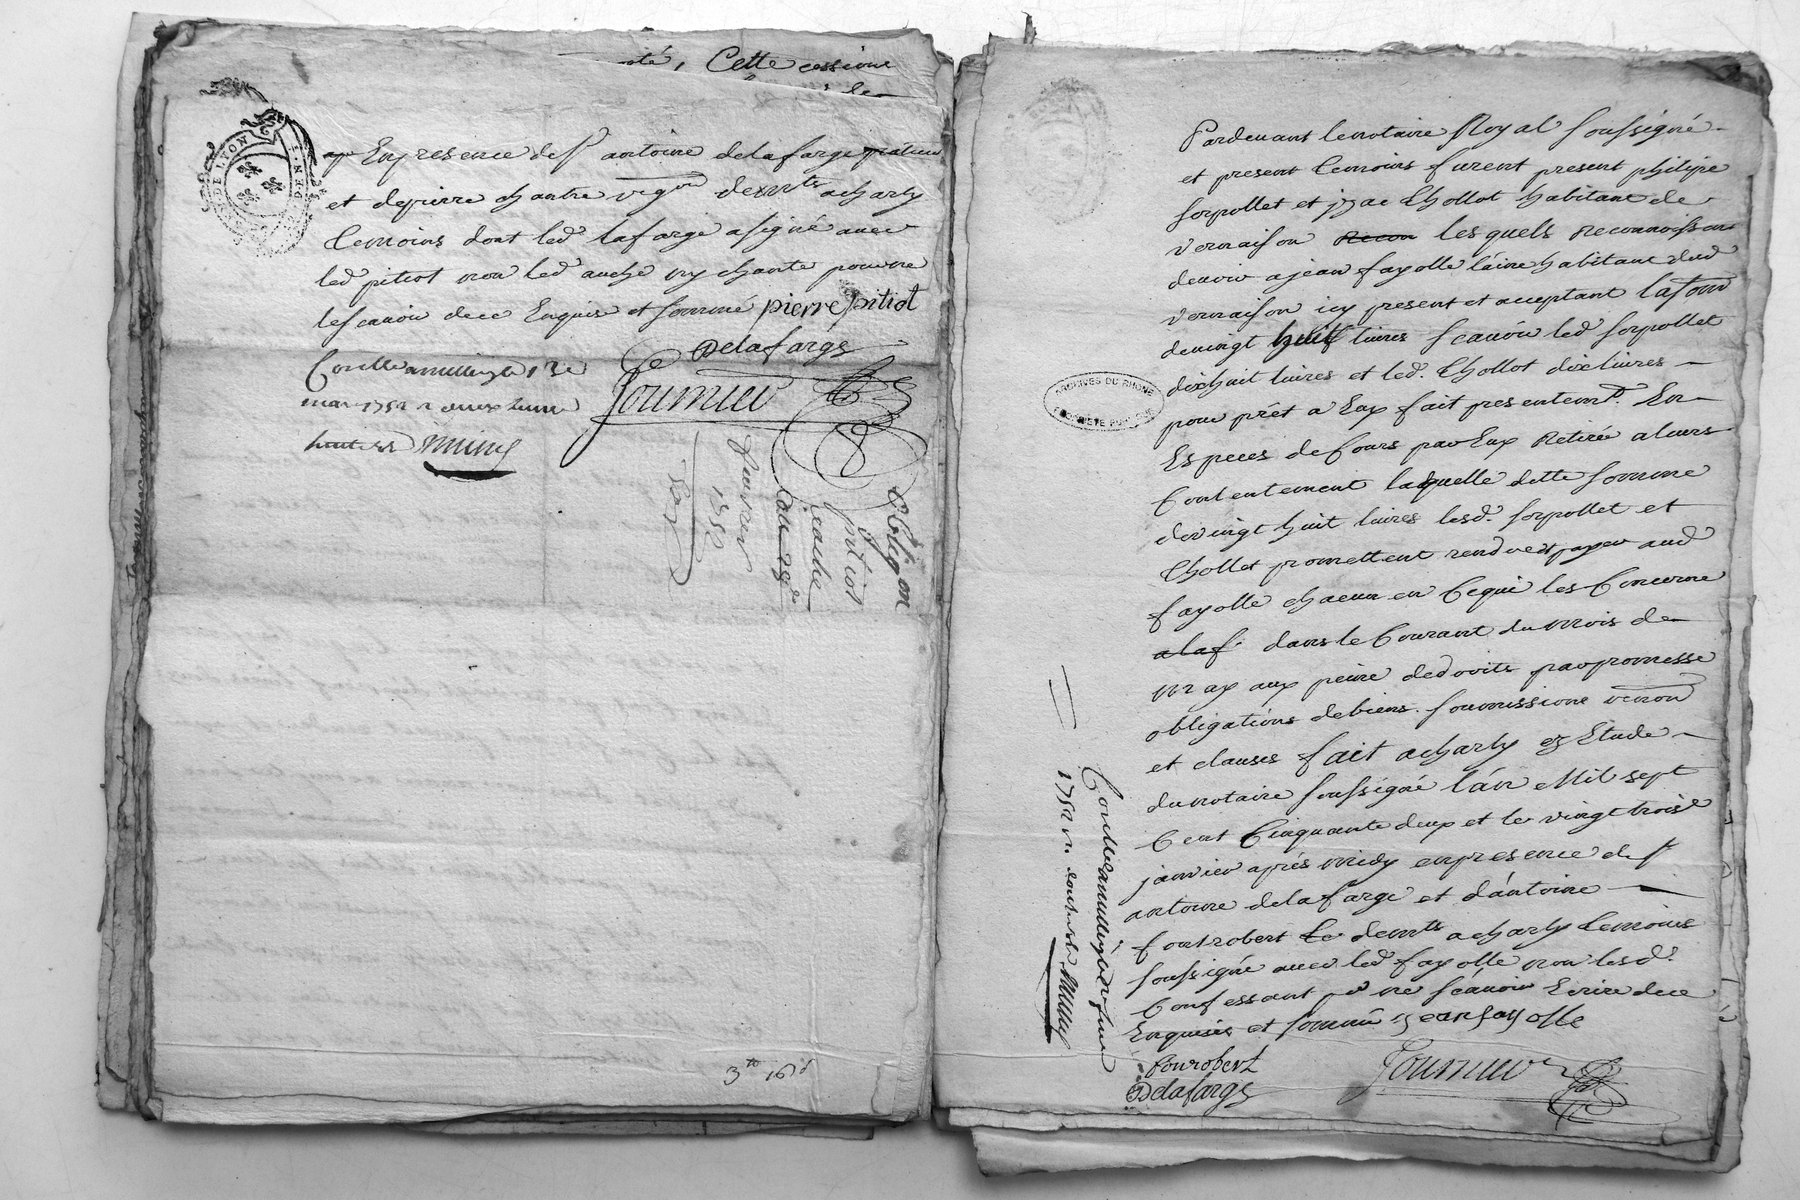 Cette cessione
GEN. DE LYON
En presence de sr antoine delafarge praticien
et depierre chantre vigon demts acharly
temoins dont led lafarge asigné avec
led pitiot non led auche ny chantre pour ne
lescavoir dece Enquis et sommé pierre pitiot
Delafarge
Conttrollé amillery le 13e
mars 1752 r douze sols
Fournier
obligon
pitiot
eauche
janvier
1752
3tt 16s
Pardevant lenotaire Royal soussigné
et present temoins furent present philipe
sorpollet et yzac Thollot habitant de
vernaison recon lesquels reconnoissent
devoir ajean fayolle l'ainé habitant dud
vernaison icy present et acceptant lasome
devingt huit livres scavoir led sorpollet
dixhuit livres et led. Thollot dix livres
pour prêt a Eux fait presentemt. En
Especes decours par Eux Retirée aleurs
Contentement laquelle dette somme
devingt huit livres lesd. sorpollet et
Thollet promettent rendre et payer aud
fayolle chacun en Cequi les Concerne
alaf dans le Courant du mois de
may aux peine dedroits par promesse
obligations debiens. soumissions renon
et clauses fait acharly ez Etude
du notaire soussigné l'an Mil sept
Cent Cinquante deux et le vingt trois
janvier après midy en presence de sr
antoine delafarge et d'antoine
fontrobert demts acharly temoins
soussigné avec led fayolle non lesd.
Confessant pr ne scavoir Ecrire dece
Enquisés et sommé jean fayolle
Fourobert
Delafarge
Fournier
ARCHIVES DU RHONE
PROPRIETE PUBLIQUE